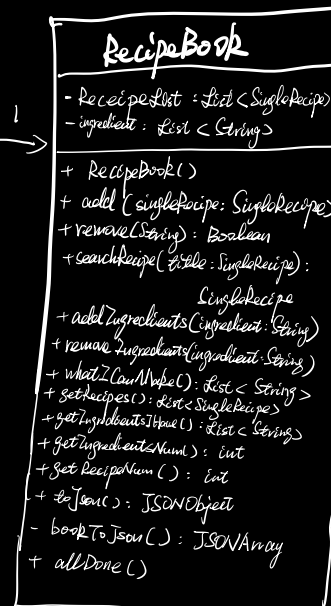 1
RecipeBook
- ReceipeList : List<SingleRecipe>
- ingredient : List < String>
+ RecipeBook()
+ add (singleRecipe: SingleRecipe)
+ remove(String) : Boolean
+ searchRecipe(title: SingleRecipe):
SingleRecipe
+ addIngredients(ingredient: String)
+ remove Ingredients(ingredient: String)
+ whatICanMake(): List < String>
+ getRecipes(): List<SingleRecipe>
+ getIngredientsIHave(): List < String>
+ getIngredientsNum() : int
+ get RecipeNum () : int
+ toJson() : JSONObject
- bookToJson() : JSONArray
+ allDone ()